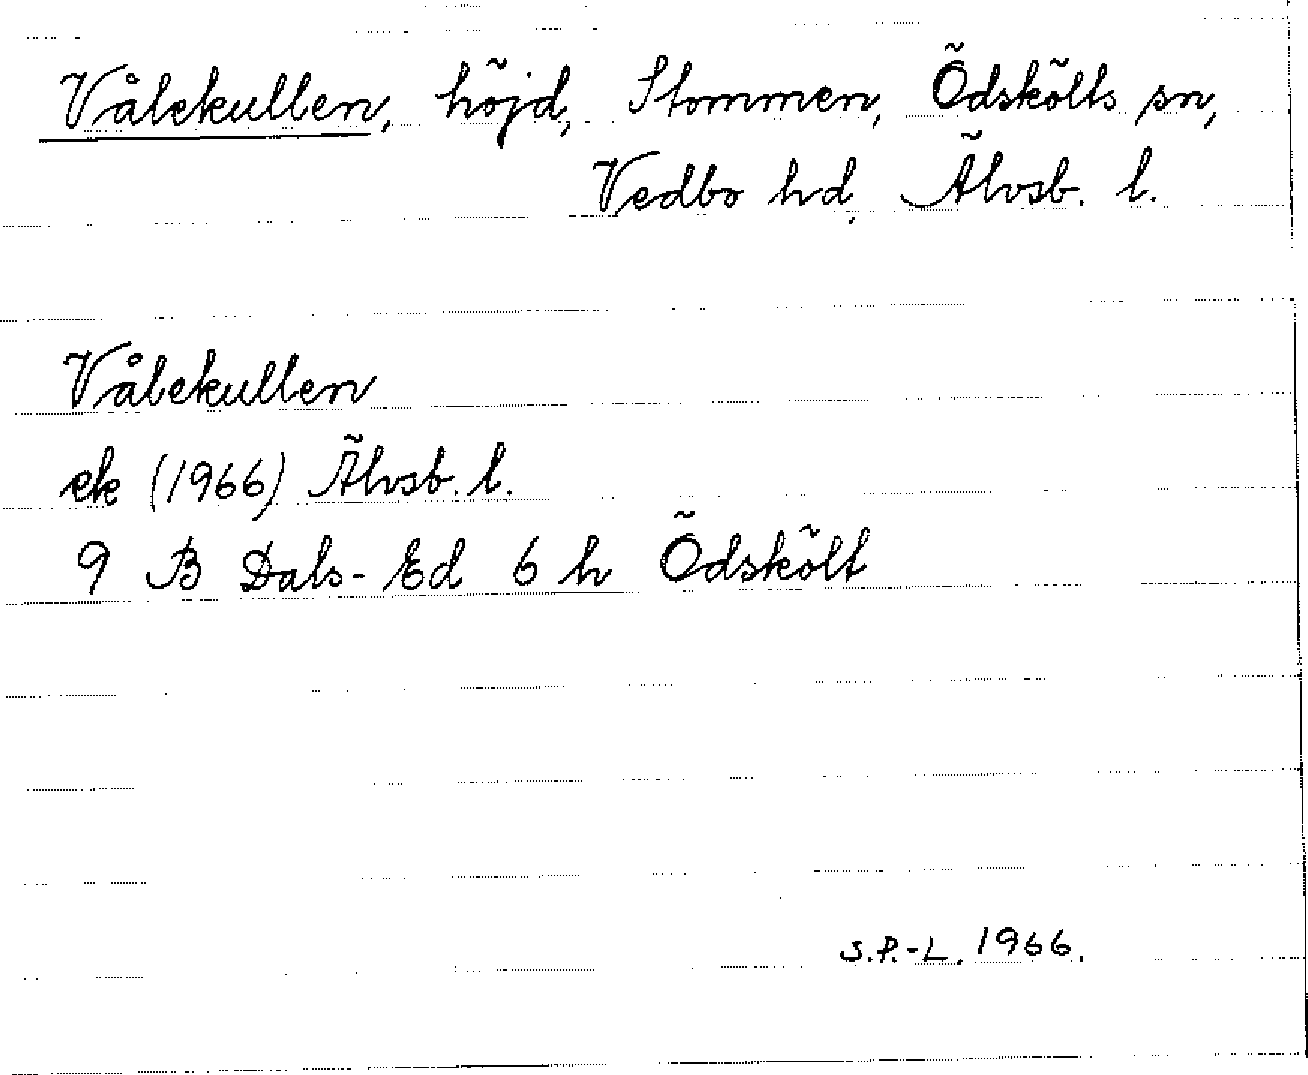 Vålekullen, höjd, Stommen, Ödskölts sn,
Vedbo hd, Älvsb. l.
Vålekullen
ek (1966) Älvsb. l.
9 B Dals-Ed 6 h Ödskölt
S.P.-L. 1966.